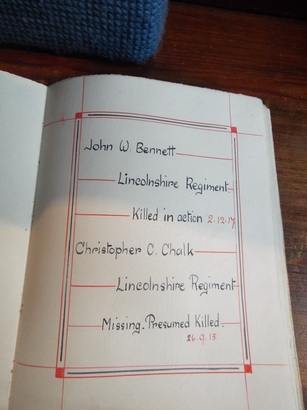 John W Bennett
Lincolnshire Regiment
Killed in action 2.12.17.
Christopher C. Chalk
Lincolnshire Regiment
Missing. Presumed Killed.
26.9.15